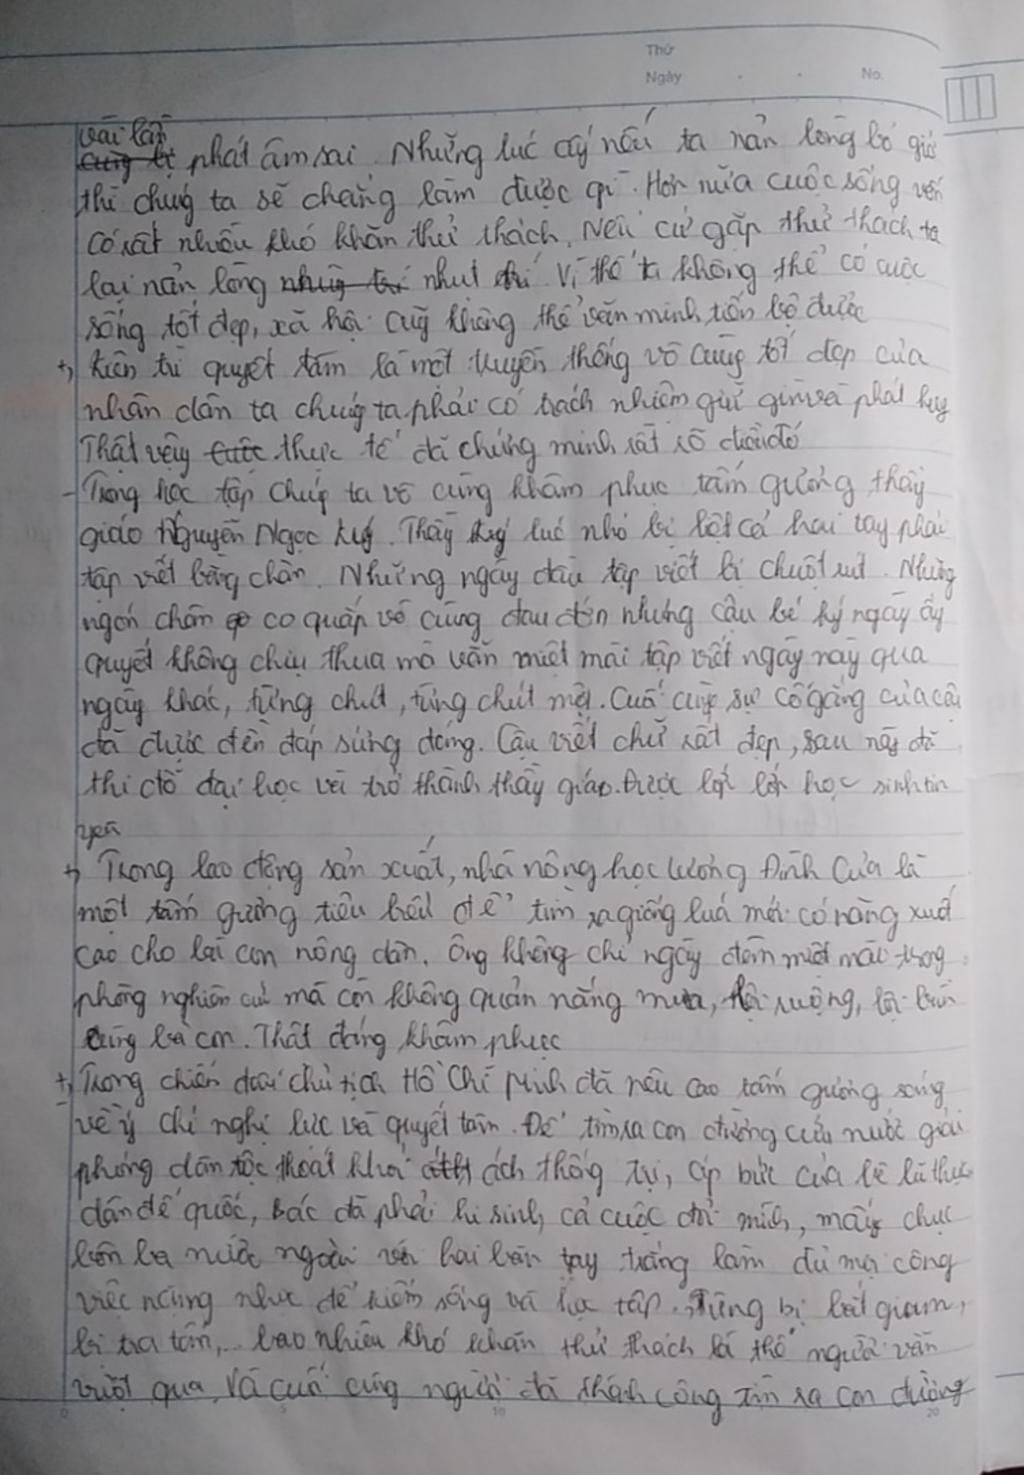 Thứ
Ngày
No.
vài lần
phát âm sai. Những lúc ấy nếu ta nản lòng bỏ giữ
thì chúng ta sẽ chẳng làm được gì. Hơn nữa cuộc sống vốn
có rất nhiều khó khăn thử thách. Nếu cứ gặp thử thách ta
lại nản lòng nhụt chí. Vì thế ta không thể có cuộc
sống tốt đẹp, xã hội cũng không thể văn minh tiến bộ được
+, Kiên trì quyết tâm là một truyền thống vô cùng tốt đẹp của
nhân dân ta chúng ta phải có trách nhiệm giữ gìn và phát huy
Thật vậy thực tế đã chứng minh rất rõ điều đó
- Trong học tập chúng ta vô cùng khâm phục tấm gương thầy
giáo Nguyễn Ngọc Ký. Thầy Ký lúc nhỏ bị liệt cả hai tay phải
tập viết bằng chân. Những ngày đầu tập viết bị chuột rút. Những
ngón chân co quắp vô cùng đau đớn nhưng cậu bé ký ngày ấy
quyết không chịu thua mà vẫn miệt mài tập viết ngày này qua
ngày khác, từng chút, từng chút một. Cuối cùng sự cố gắng của cậu
đã được đền đáp xứng đáng. Cậu viết chữ rất đẹp, sau này đã
thi đỗ đại học và trở thành thầy giáo. Được lớp lớp học sinh tin
yêu
+, Trong lao động sản xuất, nhà nông học Lương Đình Của là
một tấm gương tiêu biểu để tìm ra giống luá mới có năng xuất
cao cho bà con nông dân. Ông không chỉ ngày đêm miệt mài trong
phòng nghiên cứu mà còn không quản nắng mưa, lội ruộng, lội bùn
cùng bà con. Thật đáng khâm phục
+, Trong chiến đấu chủ tịch Hồ Chí Minh đã nêu cao tấm gương sáng
về ý chí nghị lực và quyết tâm. Để tìm ra con đường cứu nước giải
phóng dân tộc thoát khỏi ách thống trị, áp bức của bè lũ thực
dân đế quốc, Bác đã phải hi sinh cả cuộc đời mình, mấy chục
bôn ba nước ngoài với hai bàn tay trắng làm đủ mọi công
việc nặng nhọc để kiếm sống và học tập. Từng bị bắt giam,
bị tra tấn,.. bao nhiêu khó khăn thử thách là thế người vẫn
vượt qua, Và cuối cùng người đã thành công tìm ra con đường
0
5
10
20